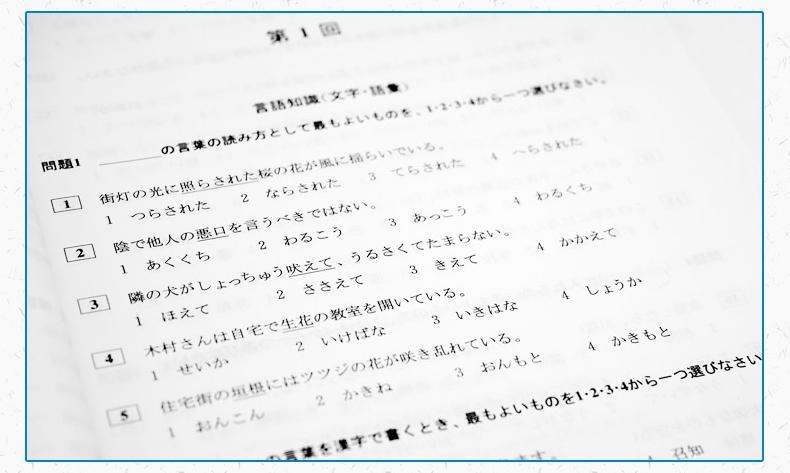 第1回
言語知識(文字・語彙)
問題1 ______の言葉の読み方として最もよいものを、1・2・3・4から一つ選びなさい。
1 街灯の光に照らされた桜の花が風に揺らいでいる。
1 つらされた 2 ならされた 3 てらされた 4 へらされた
2 陰で他人の悪口を言うべきではない。
1 あくくち 2 わるこう 3 あっこう 4 わるくち
3 隣の犬がしょっちゅう吠えて、うるさくてたまらない。
1 ほえて 2 ささえて 3 きえて 4 かかえて
4 木村さんは自宅で生花の教室を開いている。
1 せいか 2 いけばな 3 いきはな 4 しょうか
5 住宅街の垣根にはツツジの花が咲き乱れている。
1 おんこん 2 かきね 3 おんもと 4 かきもと
の言葉を漢字で書くとき、最もよいものを1・2・3・4から一つ選びなさい
ます。
4 召知